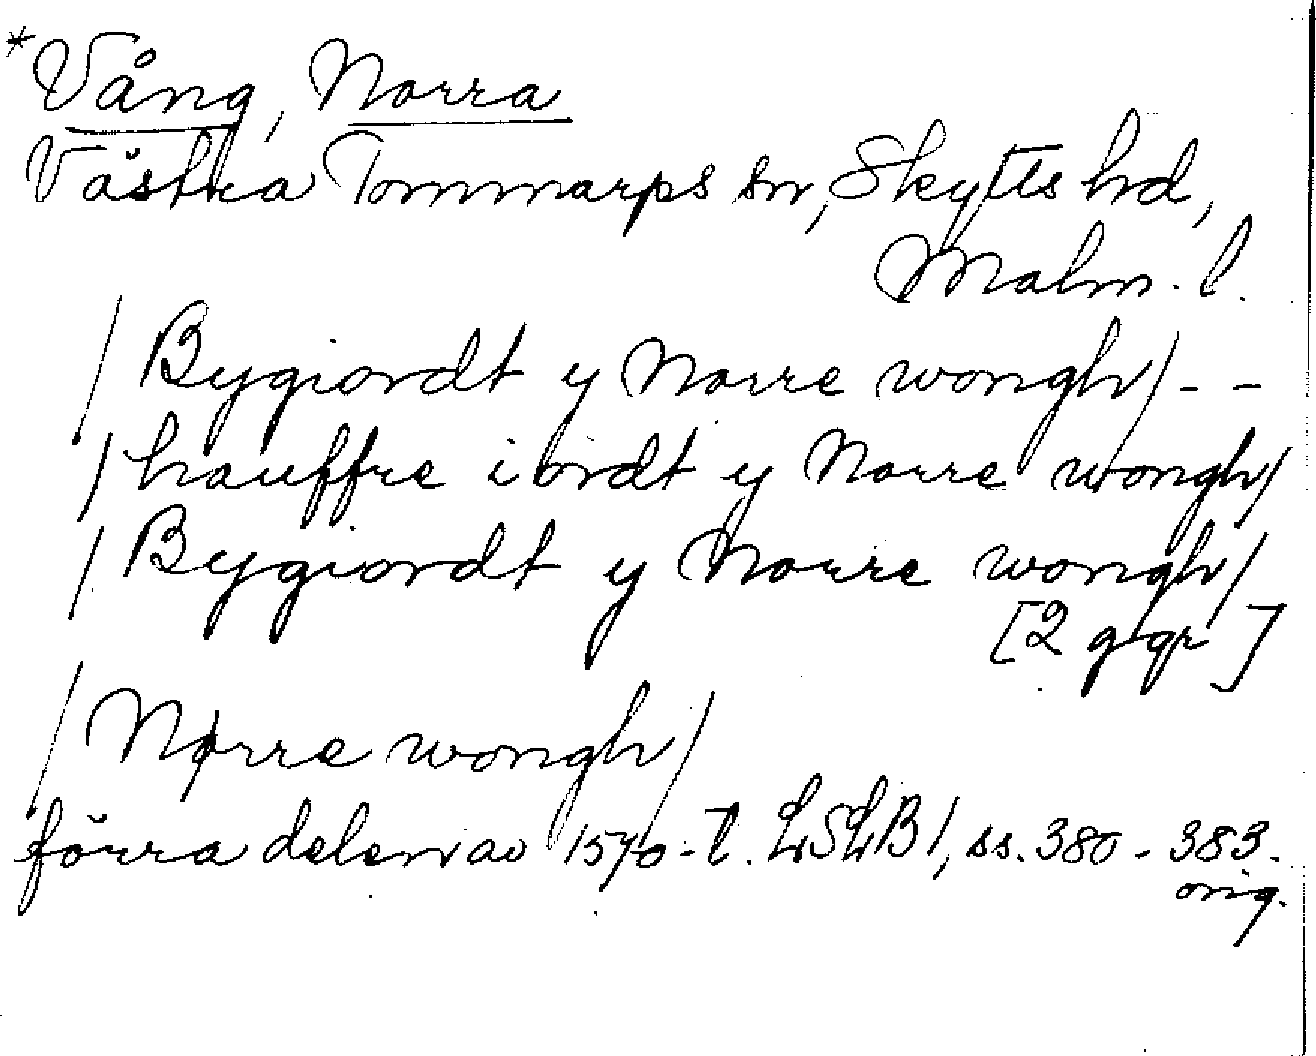 *Vång, Norra
Västra Tommarps sn, Skytts hd,
Malm. l.
/ Bygiordt y Norre wongh / - -
/ hauffre iordt y Norre wongh /
/ Bygiordt y Norre wongh /
[2 ggr]
/ Nørre wongh /
förra delen av 1570-t. LSLB 1, ss. 380-383.
orig.